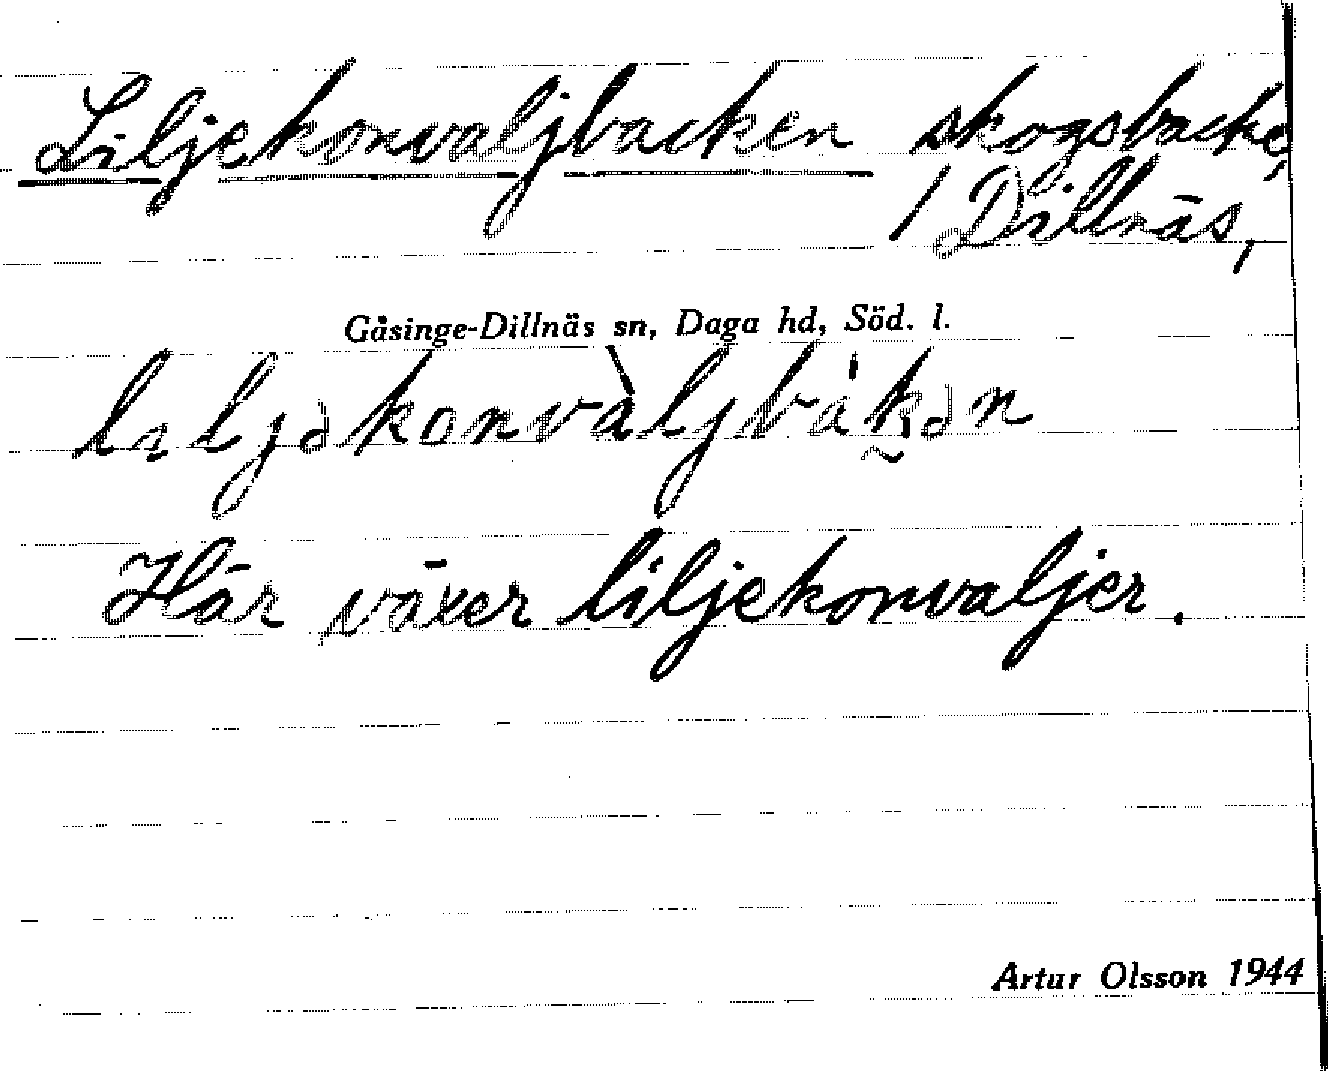 Liljekonvaljbacken skogsbacke,
/ Dillnäs,
Gåsinge-Dillnäs sn, Daga hd, Söd. l.
lıljəkonvàljbákən
Här växer liljekonvaljer.
Artur Olsson 1944